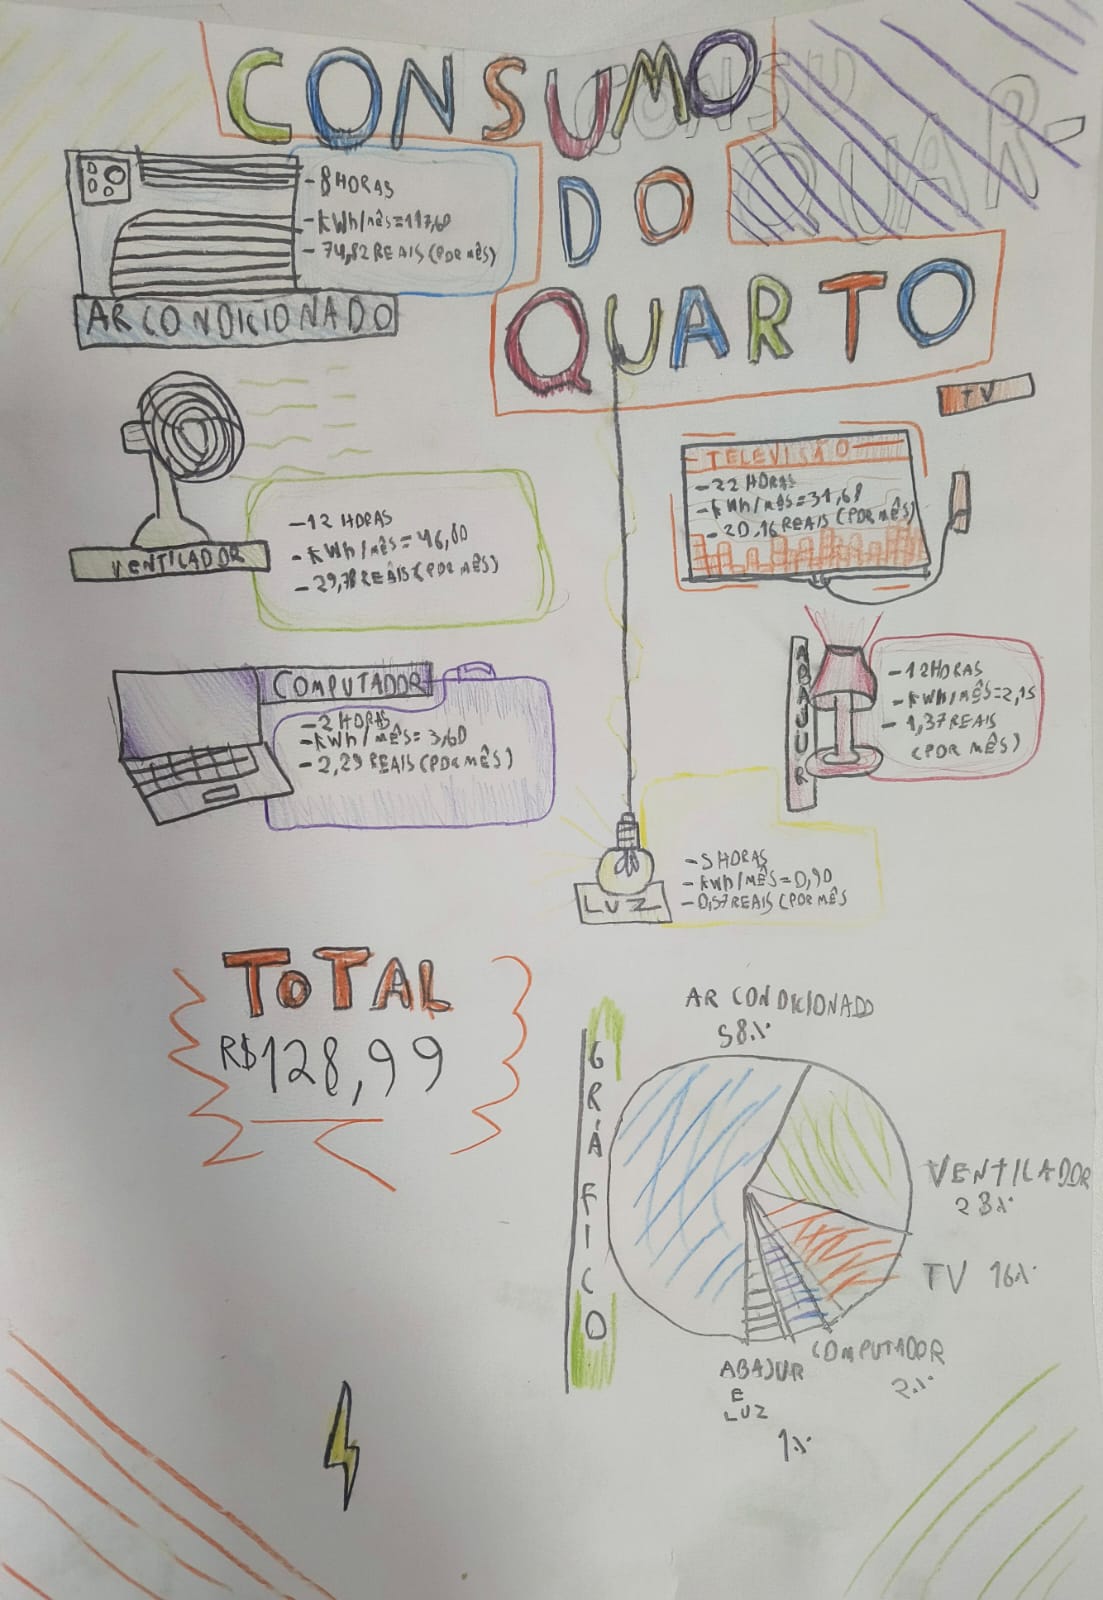 CONSUMO
DO
QUARTO
CONSU
QUAR-
- 8 HORAS
- kWh/mês=117,60
- 74,82 REAIS (POR MÊS)
AR CONDICIONADO
TV
TELEVISÃO
- 22 HORAS
- kWh/mês=31,68
- 20,16 REAIS (POR MÊS)
- 12 HORAS
- kWh/mês=46,80
- 29,78 REAIS (POR MÊS)
VENTILADOR
ABAJUR
- 12 HORAS
- kWh/MÊS=2,15
- 1,37 REAIS
(POR MÊS)
COMPUTADOR
- 2 HORAS
- kWh/mês= 3,60
- 2,29 REAIS (POR MÊS)
- 5 HORAS
- kWh/MÊS=0,90
- 0,57 REAIS (POR MÊS
LUZ
TOTAL
R$128,99
GRÁFICO
AR CONDICIONADO
58%
VENTILADOR
23%
TV 16%
COMPUTADOR
2%
ABAJUR
E
LUZ
1%